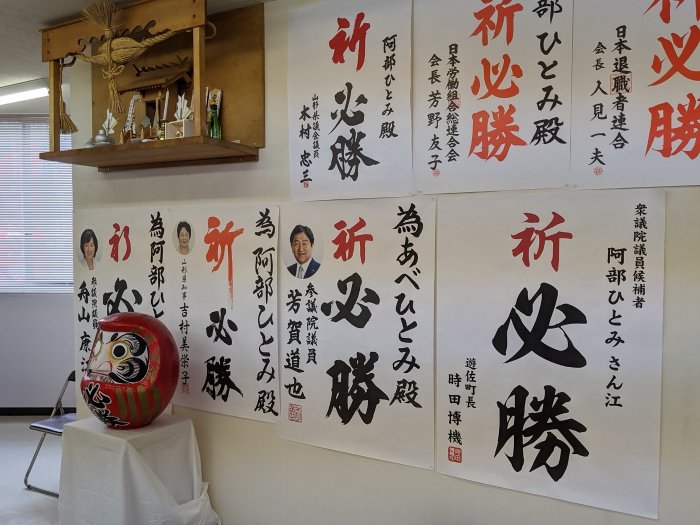 阿部ひとみ殿
祈
必勝
山形県議会議員
木村忠三
部ひとみ殿
祈必勝
日本労働組合総連合会
会長 芳野友子
必勝
日本退職者連合
会長 人見一夫
為阿部ひと
祈
必
参議院議員
舟山康江
為阿部ひとみ殿
祈
必勝
山形県知事
吉村美栄子
為あべひとみ殿
祈
必勝
参議院議員
芳賀道也
衆議院議員候補者
阿部ひとみさん江
祈
必勝
遊佐町長
時田博機
必勝